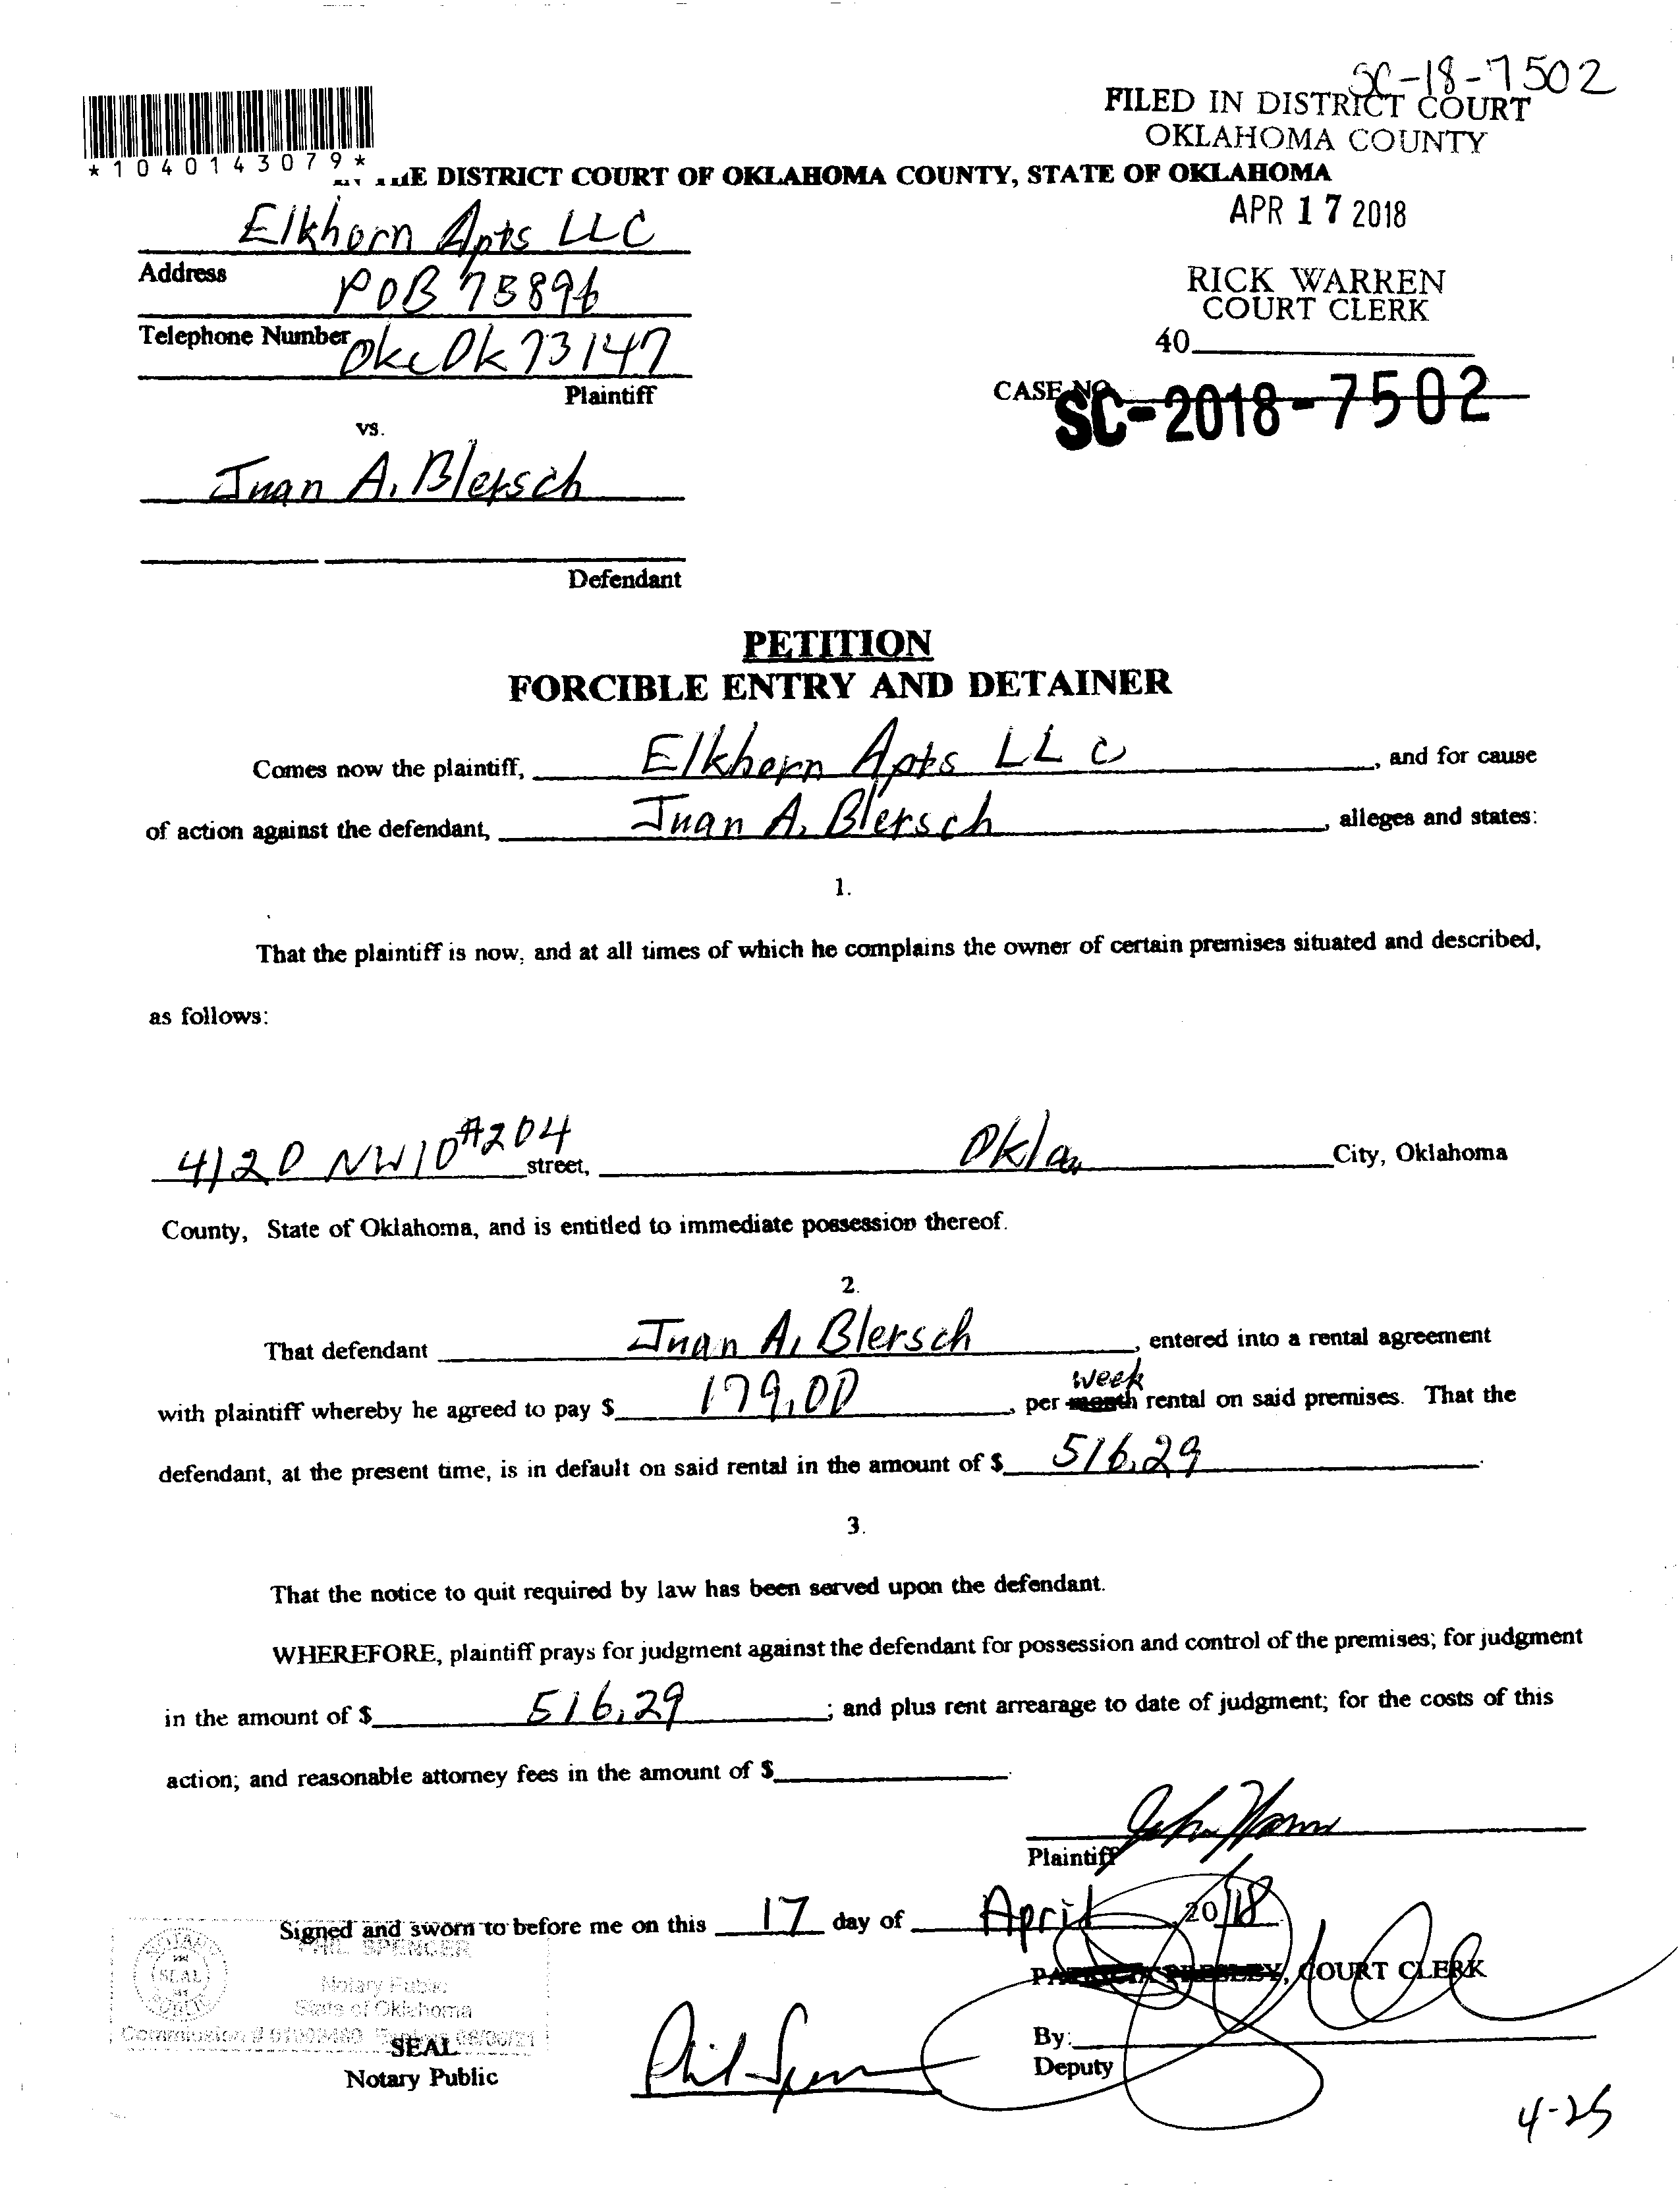 SC-18-7502
FILED IN DISTRICT COURT
OKLAHOMA COUNTY
*1040143079*
THE DISTRICT COURT OF OKLAHOMA COUNTY, STATE OF OKLAHOMA
APR 17 2018
Elkhorn Apts LLC
Address POB 75896
RICK WARREN
COURT CLERK
Telephone Number Okc Ok 73147
40
Plaintiff
CASE NO. SC-2018-7502
vs.
Juan A. Blersch
Defendant
PETITION
FORCIBLE ENTRY AND DETAINER
Comes now the plaintiff, Elkhorn Apts LLC, and for cause
of action against the defendant, Juan A. Blersch, alleges and states:
1.
That the plaintiff is now, and at all times of which he complains the owner of certain premises situated and described,
as follows:
4120 NW 10 #204 street, Okla City, Oklahoma
County, State of Oklahoma, and is entitled to immediate possession thereof.
2.
That defendant Juan A. Blersch, entered into a rental agreement
week
with plaintiff whereby he agreed to pay $ 179.00, per month rental on said premises. That the
defendant, at the present time, is in default on said rental in the amount of $ 516.29.
3.
That the notice to quit required by law has been served upon the defendant.
WHEREFORE, plaintiff prays for judgment against the defendant for possession and control of the premises; for judgment
in the amount of $ 516.29; and plus rent arrearage to date of judgment; for the costs of this
action; and reasonable attorney fees in the amount of $.
Plaintiff
Signed and sworn to before me on this 17 day of April, 2018
PHIL SPENCER
PATRICIA PRESLEY, COURT CLERK
SEAL
Notary Public
State of Oklahoma
Commission # Expires
By:
SEAL
Deputy
Notary Public
Phil Spencer
4-25